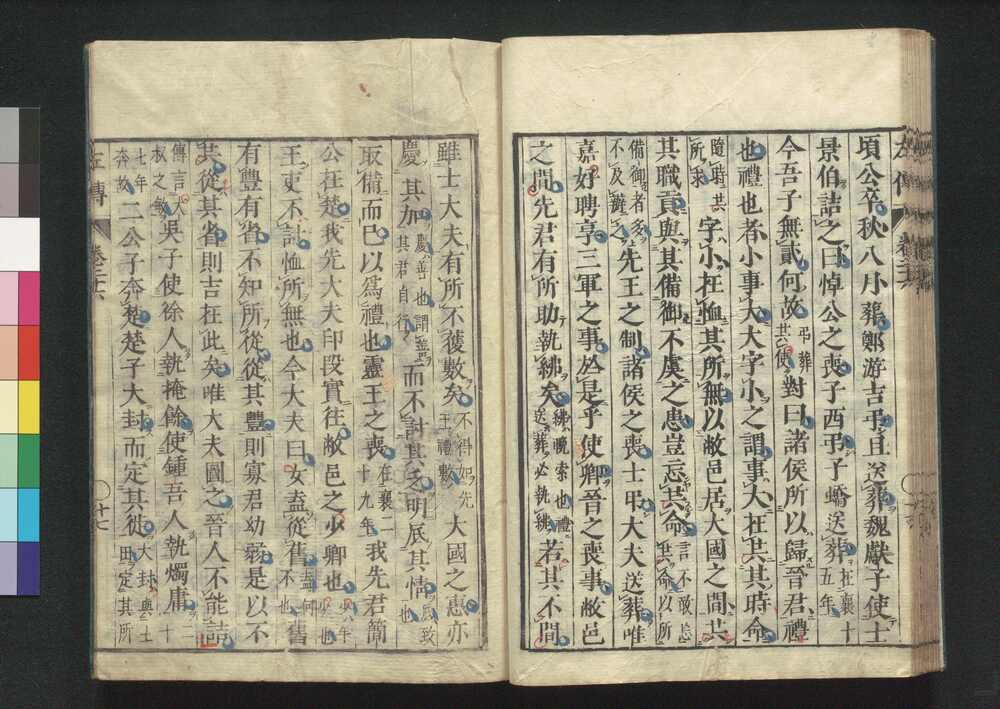 頃公卒秋八月葬鄭游吉弔且送葬魏獻子使士
景伯詰之曰悼公之喪子西弔子蟜送葬在襄十五年
今吾子無貳何故弔葬共使對曰諸侯所以歸晉君禮
也禮也者小事大大字小之謂事大在共其時命
隨時共所求字小在恤其所無以敝邑居大國之間共
其職貢與其備御不虞之患豈忘共命言不敢忘共命以所
備御者多不及辦之先王之制諸侯之喪士弔大夫送葬唯
嘉好聘享三軍之事於是乎使卿晉之喪事敝邑
之間先君有所助執紼矣紼輓索也禮送葬必執紼若其不間
雖士大夫有所不獲數矣不得如先王禮數大國之惠亦
慶其加慶善也謂善其君自行而不討其乏明厎其情厎致也
取備而已以爲禮也靈王之喪在襄二十九年我先君簡
公在楚我先大夫印段實往敝邑之少卿也少年少也
王吏不討恤所無也今大夫曰女盍從舊盍何不也舊
有豐有省不知所從從其豐則寡君幼弱是以不
共從其省則吉在此矣唯大夫圖之晉人不能詰
傳言大叔之敏吳子使徐人執掩餘使鍾吾人執燭庸二
七年奔故二公子奔楚楚子大封而定其徙大封與土田定其所
左傳 卷二十六 十七